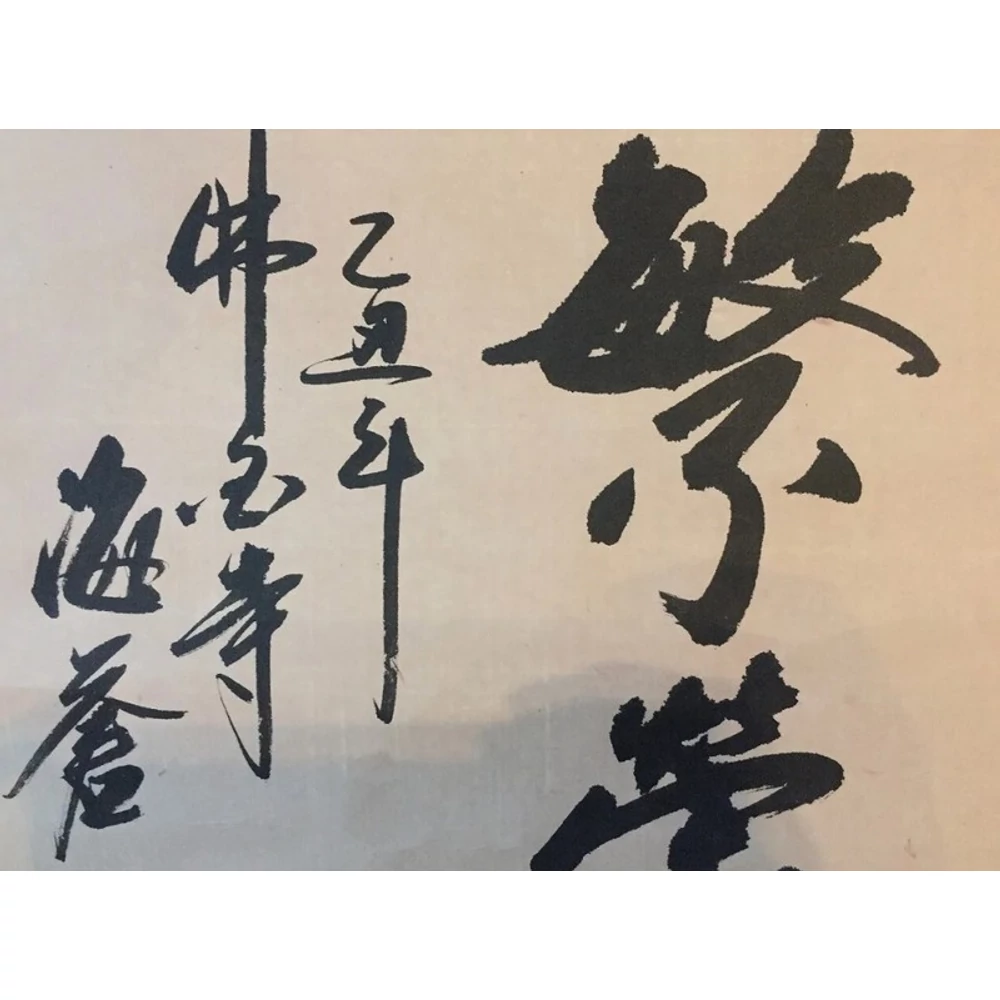 繁榮
乙丑年
佛寺
海蒼